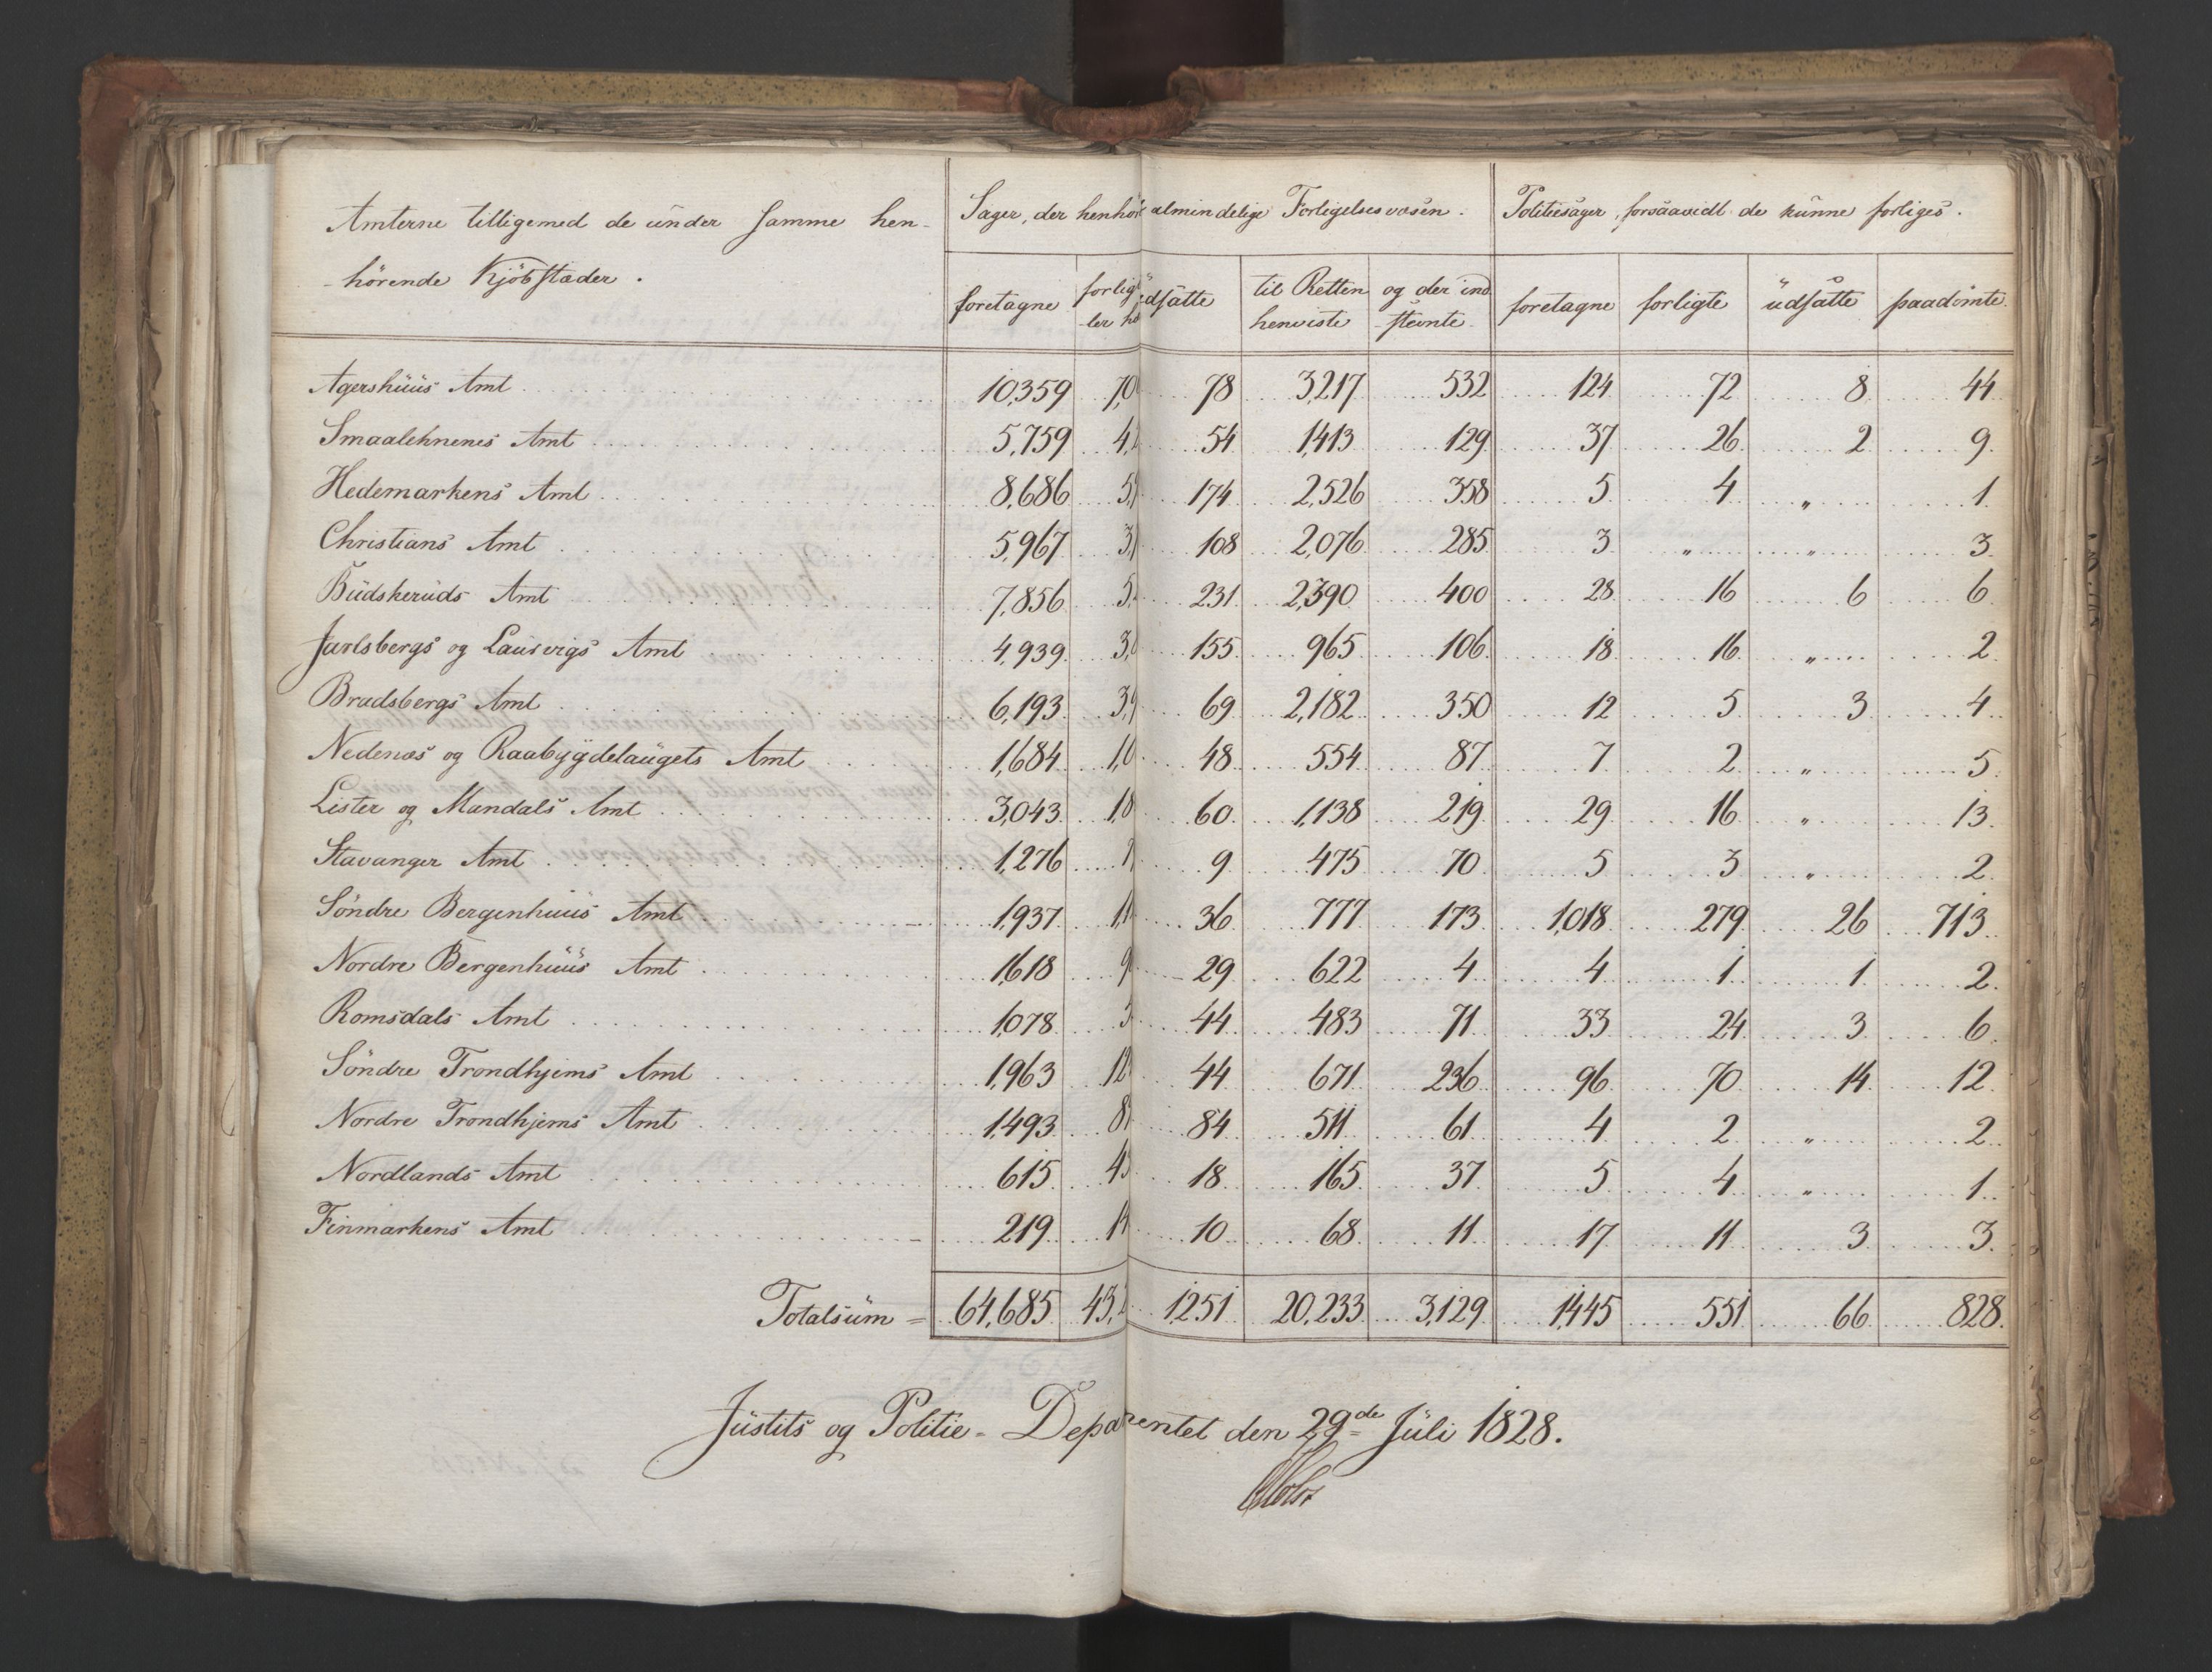 Amterne tilligemed de under samme hen-
-hörende Kjöbstæder.
Sager, der henhör almindelige Forligelsesvæsen.
Politiesager, forsaavidt de kunne forliges.
foretagne forlig udsatte til Retten henviste og der ind- -stevnte foretagne forligte udsatte paadömte
Agershuus Amt 10,359 7,0 78 3,217 532 124 72 8 44
Smaalehnenes Amt 5,759 4, 54 1,413 129 37 26 2 9
Hedemarkens Amt 8,686 5, 174 2,526 358 5 4 „ 1
Christians Amt 5,967 3, 108 2,076 285 3 „ „ 3
Budskeruds Amt 7,856 5, 231 2,390 400 28 16 6 6
Jarlsbergs og Laurvigs Amt 4,939 3, 155 965 106 18 16 „ 2
Bradsbergs Amt 6,193 3,9 69 2,182 350 12 5 3 4
Nedenæs og Raabygdelaugets Amt 1,684 1,0 48 554 87 7 2 „ 5
Lister og Mandals Amt 3,043 1,8 60 1,138 219 29 16 „ 13
Stavanger Amt 1,276 9 475 70 5 3 „ 2
Söndre Bergenhuus Amt 1,937 1,1 36 777 173 1,018 279 26 713
Nordre Bergenhuus Amt 1,618 9 29 622 4 4 1 1 2
Romsdals Amt 1,078 5 44 483 71 33 24 3 6
Söndre Trondhjems Amt 1,963 1,2 44 671 236 96 70 14 12
Nordre Trondhjems Amt 1,493 8 84 511 61 4 2 „ 2
Nordlands Amt 615 4 18 165 37 5 4 „ 1
Finmarkens Amt 219 1 10 68 11 17 11 3 3
Totalsum = 64,685 43,2 1,251 20,233 3,129 1,445 551 66 828
Justits og Politie-Depar entet den 29de Juli 1828.